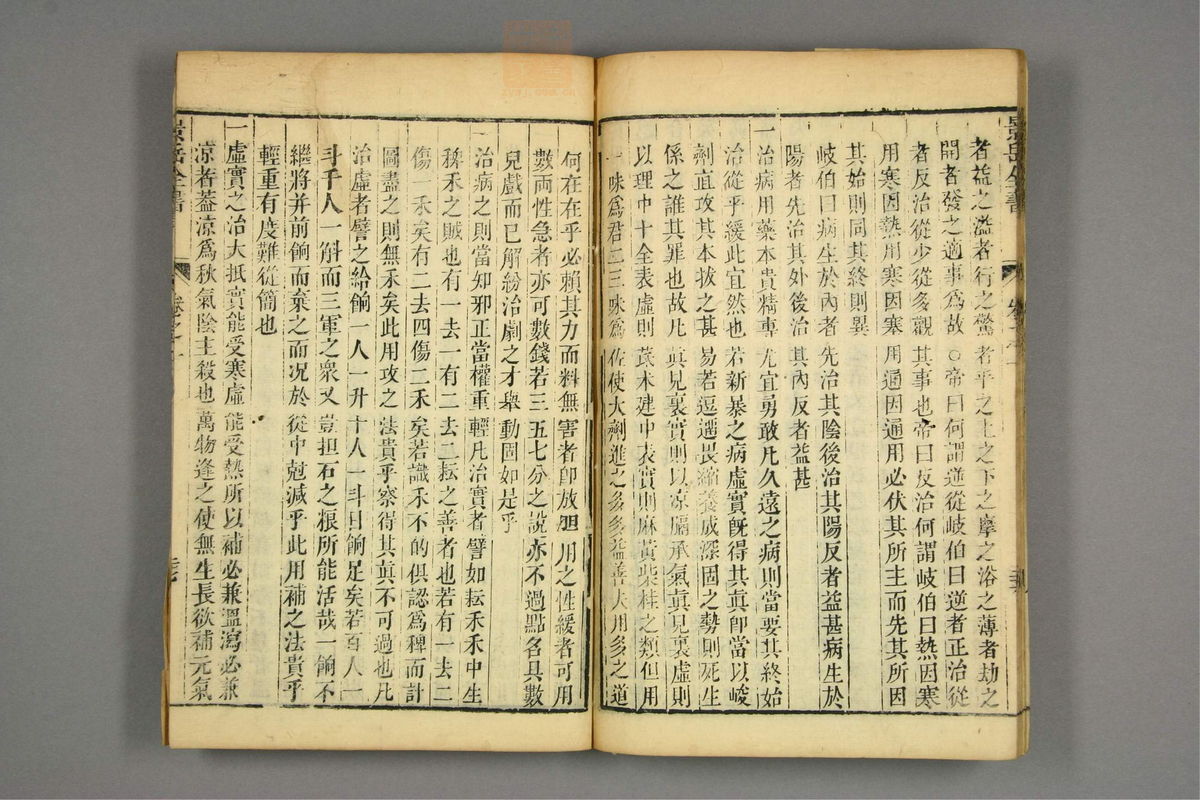 景岳全書
卷之一
者益之溢者行之驚者平之上之下之摩之浴之薄者劫之
開者發之適事爲故○帝曰何謂逆從岐伯曰逆者正治從
者反治從少從多觀其事也帝曰反治何謂岐伯曰熱因寒
用寒因熱用寒因寒用通因通用必伏其所主而先其所因
其始則同其終則異
岐伯曰病生於內者先治其陰後治其陽反者益甚病生於
陽者先治其外後治其內反者益甚
一治病用藥本貴精專尤宜勇敢凡久遠之病則當要其終始
治從乎緩此宜然也若新暴之病虛實既得其真卽當以峻
劑直攻其本拔之甚易若逗遛畏縮養成深固之勢則死生
係之誰其罪也故凡真見裏實則以凉膈承氣真見裏虛則
以理中十全表虛則芪朮建中表實則麻黃柴桂之類但用
一味爲君二三味爲佐使大劑進之多多益善夫用多之道
何在在乎必賴其力而料無害者卽放胆用之性緩者可用
數兩性急者亦可數錢若三五七分之說亦不過點名具數
兒戲而已解紛治劇之才舉動固如是乎
一治病之則當知邪正當權重輕凡治實者譬如耘禾禾中生
稗禾之賊也有一去一有二去二耘之善者也若有一去二
傷一禾矣有二去四傷二禾矣若識禾不的俱認爲稗而計
圖盡之則無禾矣此用攻之法貴乎察得其真不可過也凡
治虛者譬之給餉一人一升十人一斗日餉足矣若百人一
斗千人一斛而三軍之衆又豈担石之糧所能活哉一餉不
繼將并前餉而棄之而况於從中尅減乎此用補之法貴乎
輕重有度難從簡也
一虛實之治大抵實能受寒虛能受熱所以補必兼溫瀉必兼
凉者葢凉爲秋氣陰主殺也萬物逢之使無生長欲補元氣
景岳全書
卷之一